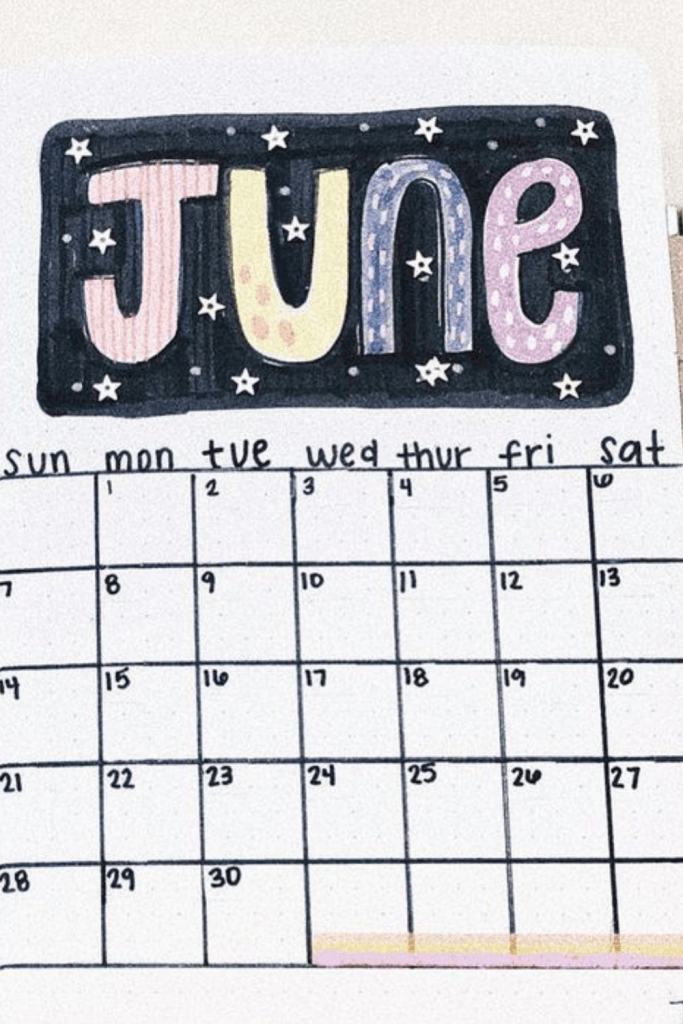 June
sun mon tue wed thur fri sat
1 2 3 4 5 6
7 8 9 10 11 12 13
14 15 16 17 18 19 20
21 22 23 24 25 26 27
28 29 30